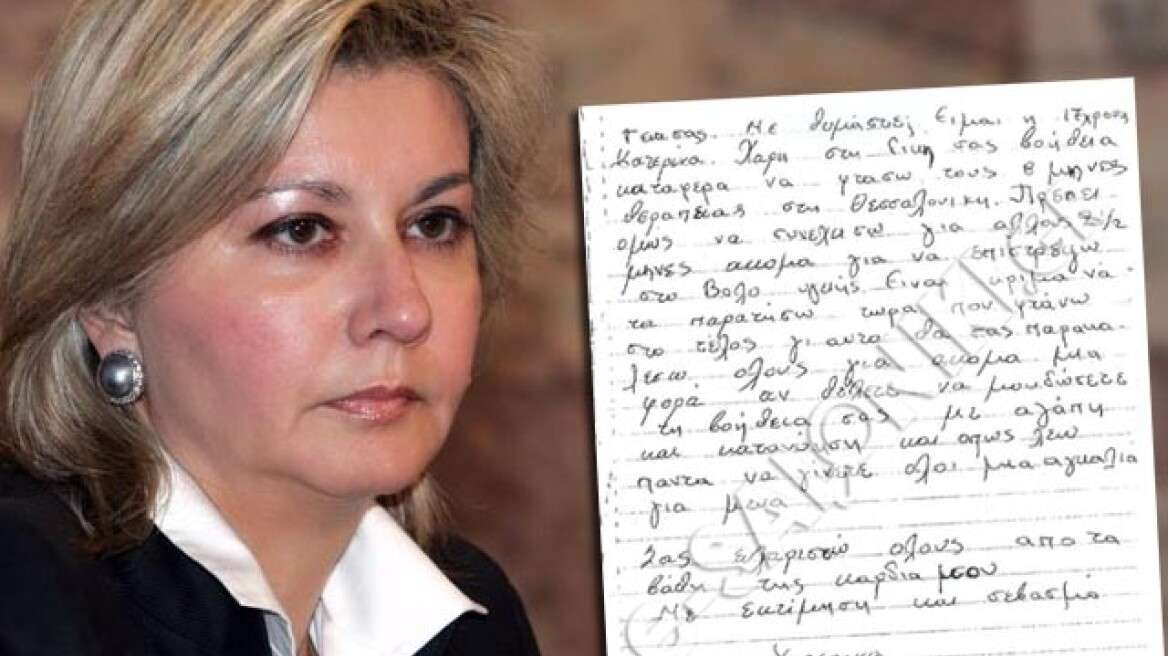 Γεια σας. Με θυμάστε; Ειμαι η 17χρονη
Κατερινα. Χαρη στη δικη σας βοήθεια
καταφερα να φτασω τους 8 μηνες
θεραπειας στη Θεσσαλονικη. Πρεπει
ομως να συνεχισω για αλλους 2 1/2
μηνες ακομα για να επιστρεψω
στο Βολο υγιης. Ειναι κριμα να
τα παρατησω τωρα που φτάνω
στο τέλος γι αυτο θα σας παρακα-
λεσω ολους για ακομα μια
φορα αν θελετε να μου δώσετε
τη βοήθεια σας με αγάπη
και κατανόηση και οπως λεω
παντα να γινετε ολοι μια αγκαλια
για μενα
Σας ευχαριστώ ολους απο τα
βαθη της καρδια μσου
Με εκτίμηση και σεβασμό